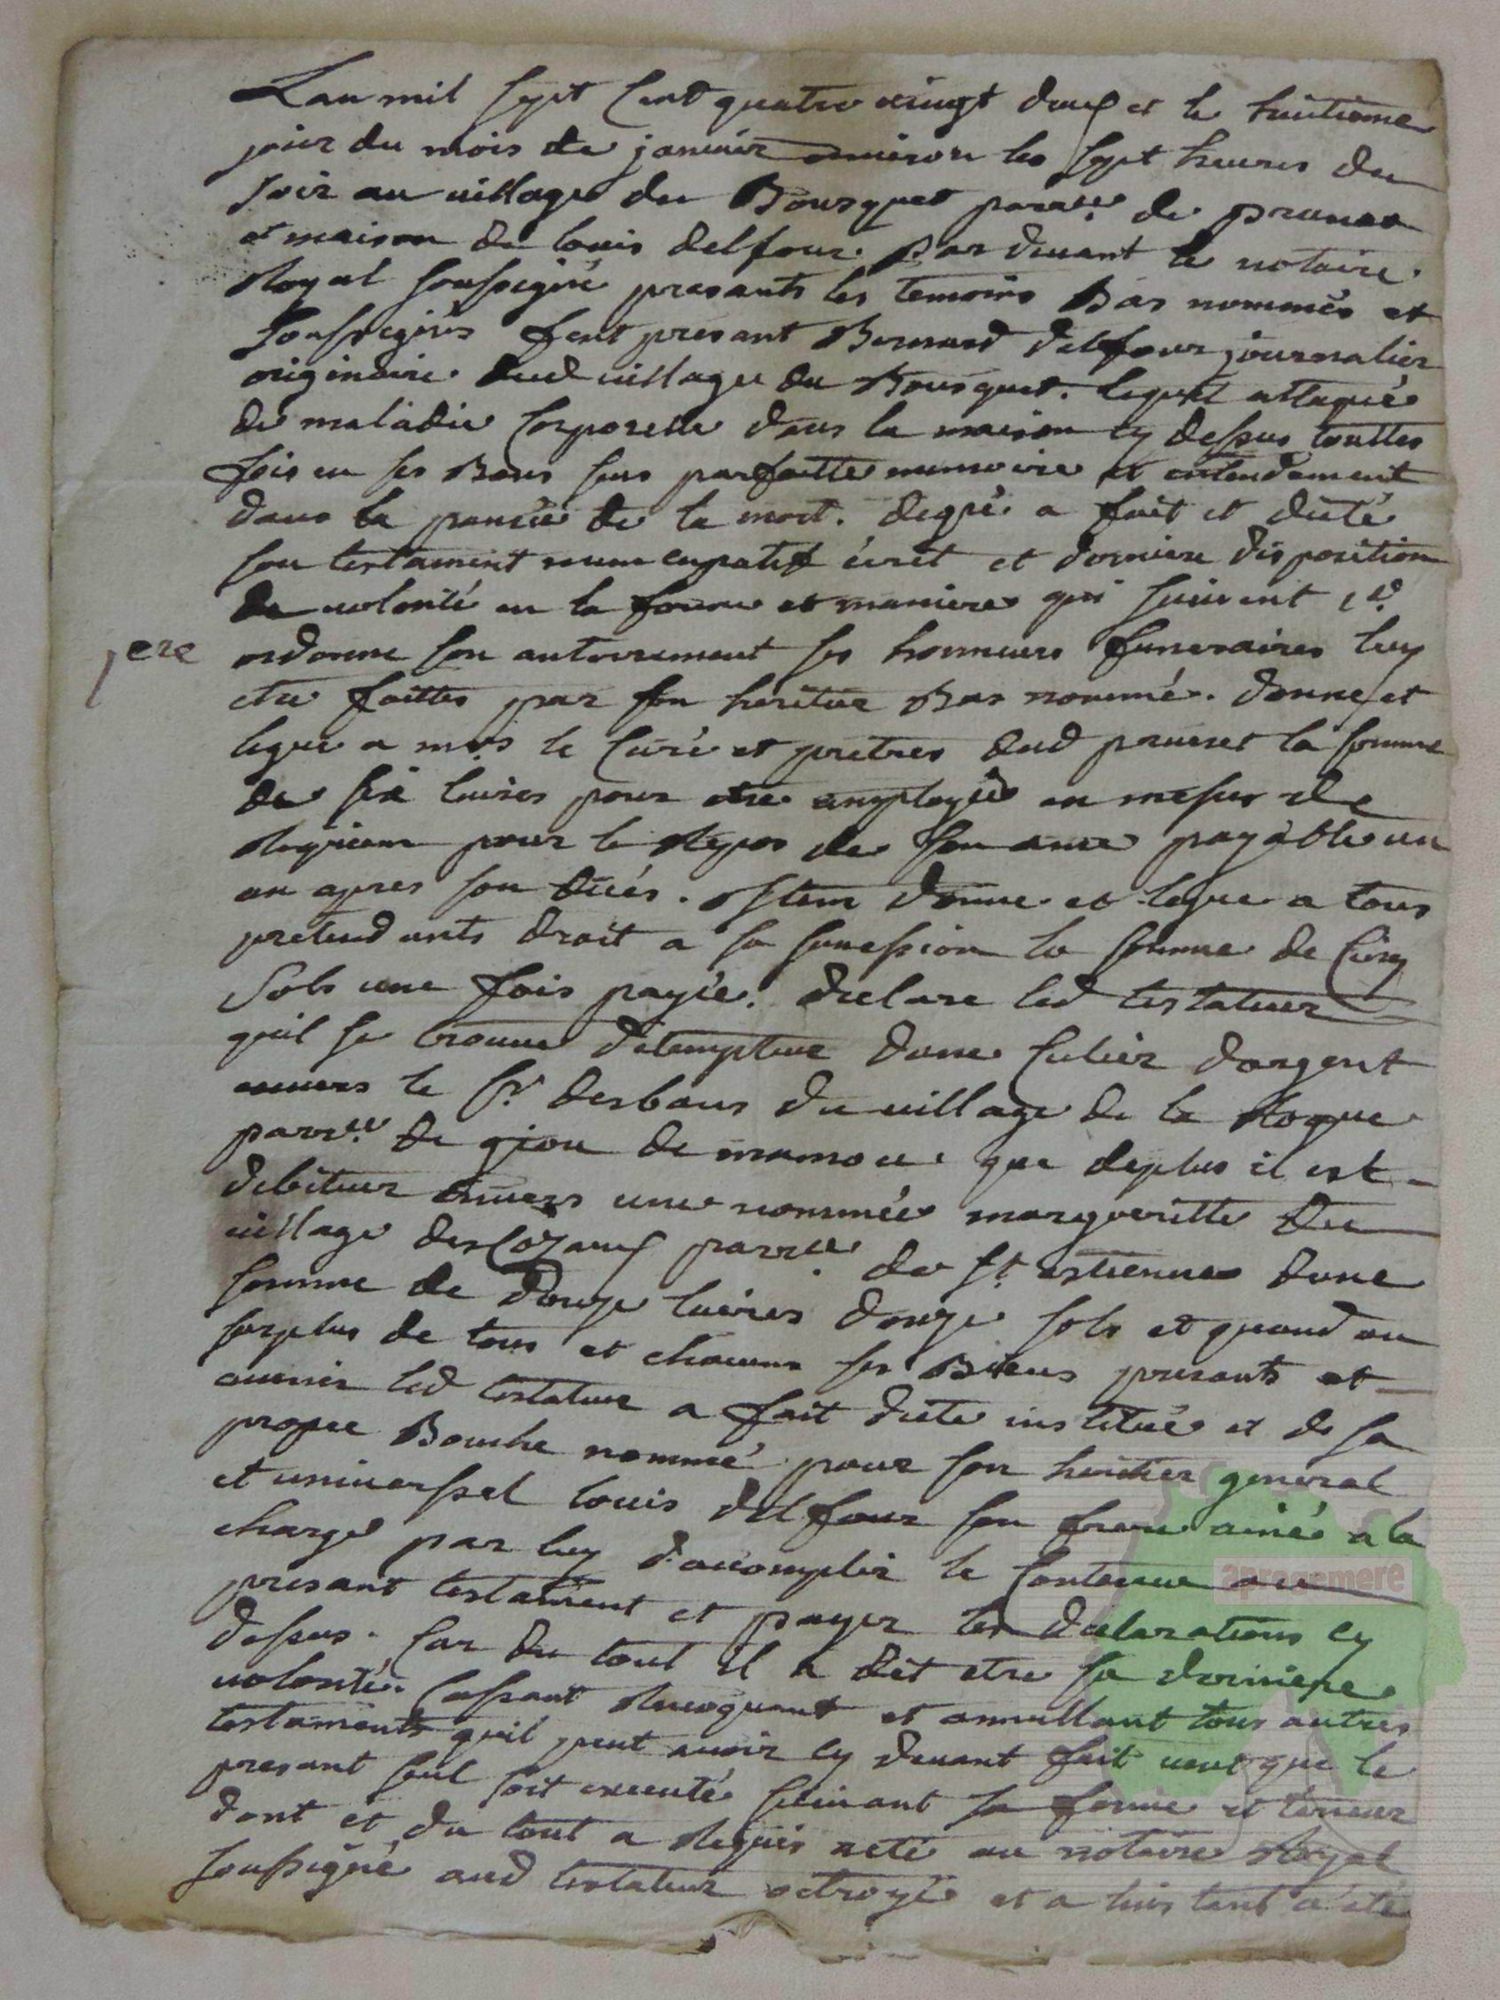 Lan mil sept cent quatre vingt deux et le huitieme
jour du mois de janvier environ les sept heures du
soir au village du Bousquet parr.lle de prunet
et maison de louis delfour. Par devant le notaire
Royal soussigné presants les temoins Bas nommés et
soussignés feut presant Bernard delfour journalier
originaire dud village du Bousquet. lequel attaqué
de maladie corporelle dans la maison cy dessus touttes
fois en ses Bons sens parfaitte memoire et entendement
dans la pensée de la mort. de gré a fait et dicté
son testament nuncupatif écrit et derniere disposition
de volonté en la forme et maniere qui suivent
1ere
ordonne son anterrement ses honneurs funeraires luy
etre faittes par son heritier Bas nommé. donne et
legue a mrs le curé et pretres dud prunet la somme
de six livres pour etre employée en messes de
Requiem pour le Repos de son ame payable un
an apres son décés. Item donne et legue a tous
pretendants droit a sa sucession la somme de cinq
sols une fois payée. declare led testateur
quil se trouve détempteur dune culier dargent
envers le sr. desbans du village de la Roque
parr.lle de giou de mamou. que deplus il est
debiteur envers une nommée margueritte du
village des parr.lle de st. estienne dune
somme de douze livres douze sols et quand au
surplus de tous et chacuns ses Biens presants et
avenir led testateur a fait dicté institué et de sa
propre Bouche nommé pour son heritier general
et universsel louis delfour son frere ainé a la
charge par luy d'acomplir le contenue au
presant testament et payer les declarations cy
dessus. Car du tout il a dit etre sa derniere
volonté. Cassant Revoquant et annullant tous autres
testaments quil peut avoir cy devant fait veut que le
presant seul soit executé suivant sa forme et teneur
dont et du tout a Requis acte au notaire Royal
soussigné aud testateur octroyé et a linstant a été
apragemere